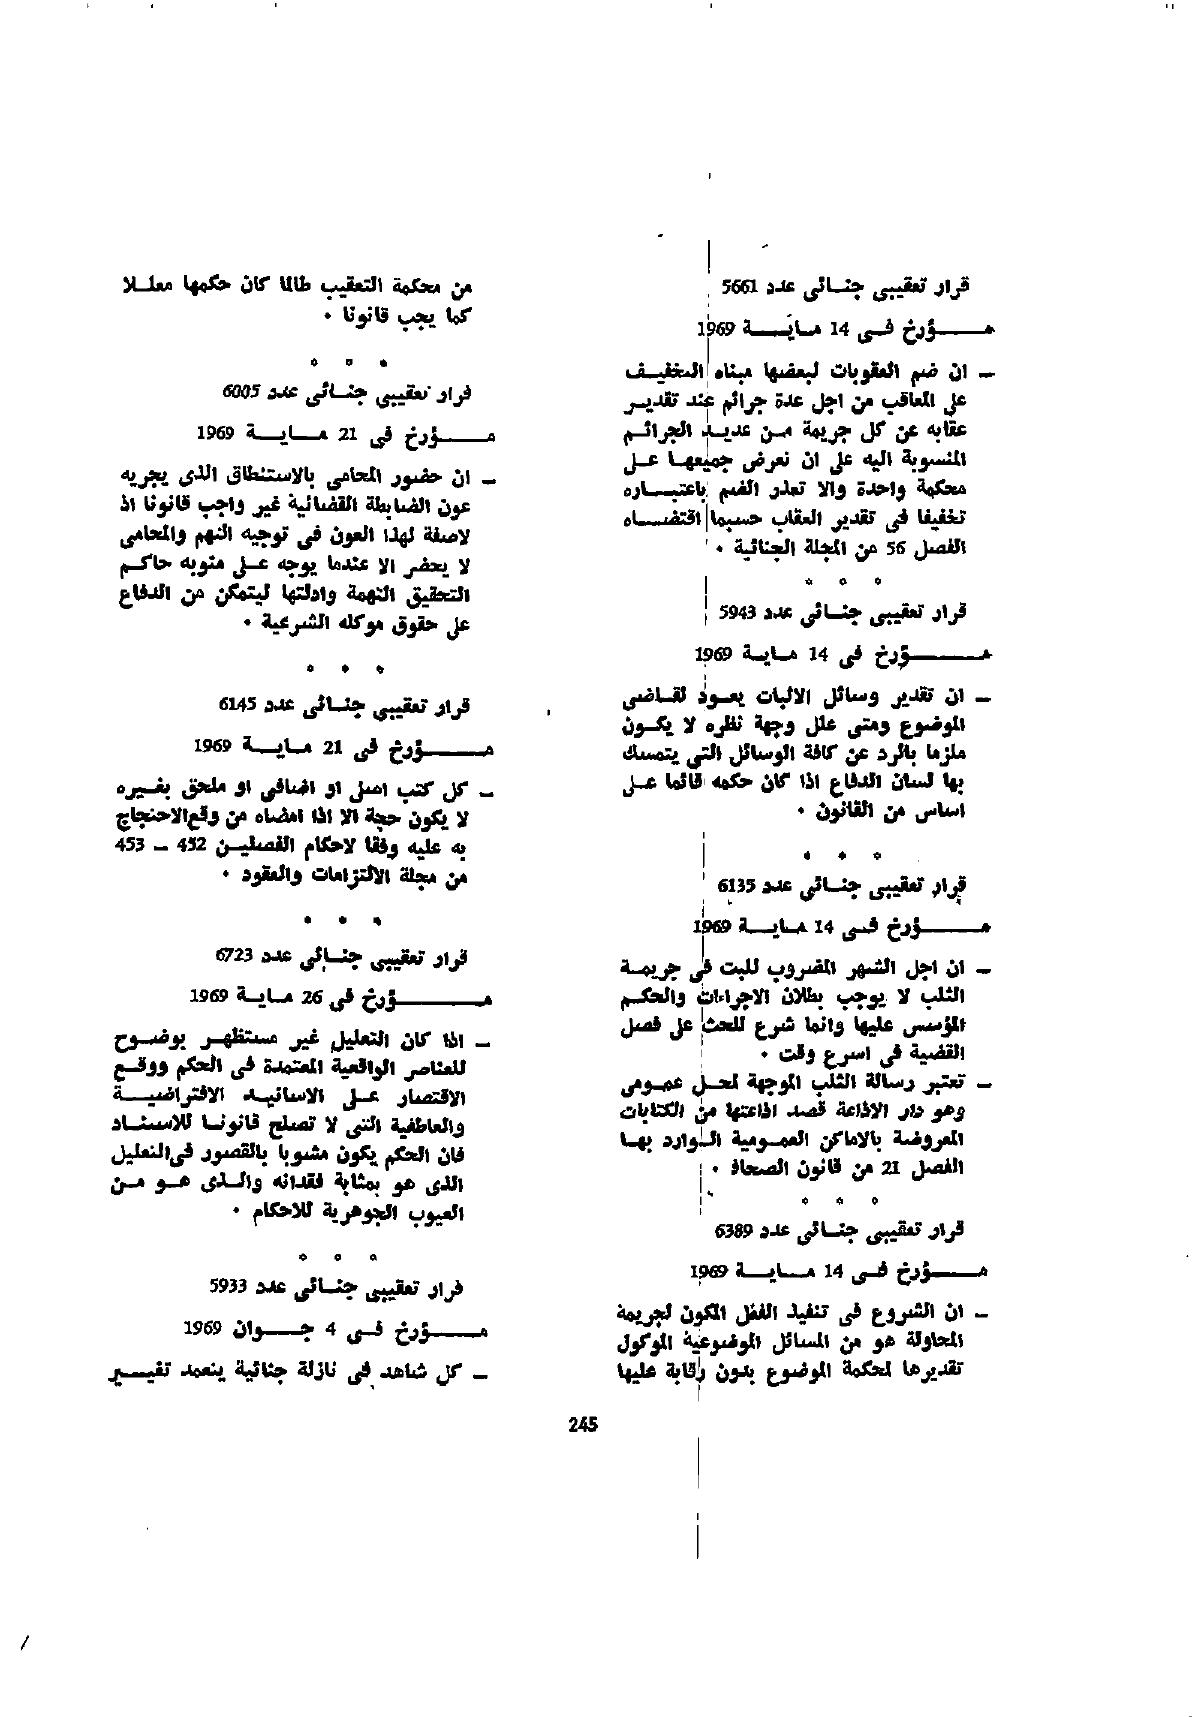 قرار تعقيبى جنــائى عدد 5661
مـــــؤرخ فـــى 14 مــايــــة 1969
— ان ضم العقوبات لبعضها مبناه التخفيــف
على المعاقب من اجل عدة جرائم عند تقديــر
عقابه عن كل جريمة مــن عديــد الجرائــم
المنسوبة اليه على ان تعرض جميعهــا عــلى
محكمة واحدة والا تعذر الضم باعتبــــاره
تخفيفا فى تقدير العقاب حسبما اقتضــــاه
الفصل 56 من المجلة الجنائية •
قرار تعقيبى جنــائى عدد 5943
مـــــؤرخ فى 14 مــايــة 1969
— ان تقدير وسائل الاثبات يعــود لقــاضى
الموضوع ومتى علل وجهة نظره لا يكــون
ملزما بالرد عن كافة الوسائل التى يتمسك
بها لسان الدفاع اذا كان حكمه قائما عــلى
اساس من القانون •
قرار تعقيبى جنــائى عدد 6135
مـــــؤرخ فــى 14 مــايــــة 1969
— ان اجل الشهر المضروب للبت فى جريمــة
الثلب لا يوجب بطلان الاجراءات والحكــم
المؤسس عليها وانما شرع للحث على فصل
القضية فى اسرع وقت •
— تعتبر رسالة الثلب الموجهة لمحــل عمــومى
وهو دار الاذاعة قصد اذاعتها من الكتابات
المعروضة بالاماكن العمــومية الــوارد بهــا
الفصل 21 من قانون الصحافة •
قرار تعقيبى جنــائى عدد 6389
مـــــؤرخ فــى 14 مــايــــة 1969
— ان الشروع فى تنفيذ الفعل المكون لجريمة
المحاولة هو من المسائل الموضوعية الموكول
تقديرها لمحكمة الموضوع بدون رقابة عليها
من محكمة التعقيب طالما كان حكمها معلــلا
كما يجب قانونا •
قرار تعقيبى جنــائى عدد 6005
مـــــؤرخ فى 21 مــايــــة 1969
— ان حضور المحامى بالاستنطاق الذى يجريه
عون الضابطة القضائية غير واجب قانونا اذ
لاصفة لهذا العون فى توجيه التهم والمحامى
لا يحضر الا عندما يوجه عــلى منوبه حاكــم
التحقيق التهمة وادلتها ليتمكن من الدفاع
على حقوق موكله الشرعية •
قرار تعقيبى جنــائى عدد 6145
مـــــؤرخ فى 21 مــايــــة 1969
— كل كتب اصلى او اضافى او ملحق بغــيره
لا يكون حجة الا اذا امضاه من وقع الاحتجاج
به عليه وفقا لاحكام الفصليــن 452 — 453
من مجلة الالتزامات والعقود •
قرار تعقيبى جنــائى عدد 6723
مـــــؤرخ فى 26 مــايــة 1969
— اذا كان التعليل غير مستظهــر بوضــوح
للعناصر الواقعية المعتمدة فى الحكم ووقــع
الاقتصار عــلى الاسانيــد الافتراضيــــة
والعاطفية التى لا تصلح قانونــا للاستنــاد
فان الحكم يكون مشوبا بالقصور فى التعليل
الذى هو بمثابة فقدانه والــذى هــو مــن
العيوب الجوهرية للاحكام •
قرار تعقيبى جنــائى عدد 5933
مـــــؤرخ فــى 4 جــــوان 1969
— كل شاهد فى نازلة جنائية يتعمد تغيــــير
245